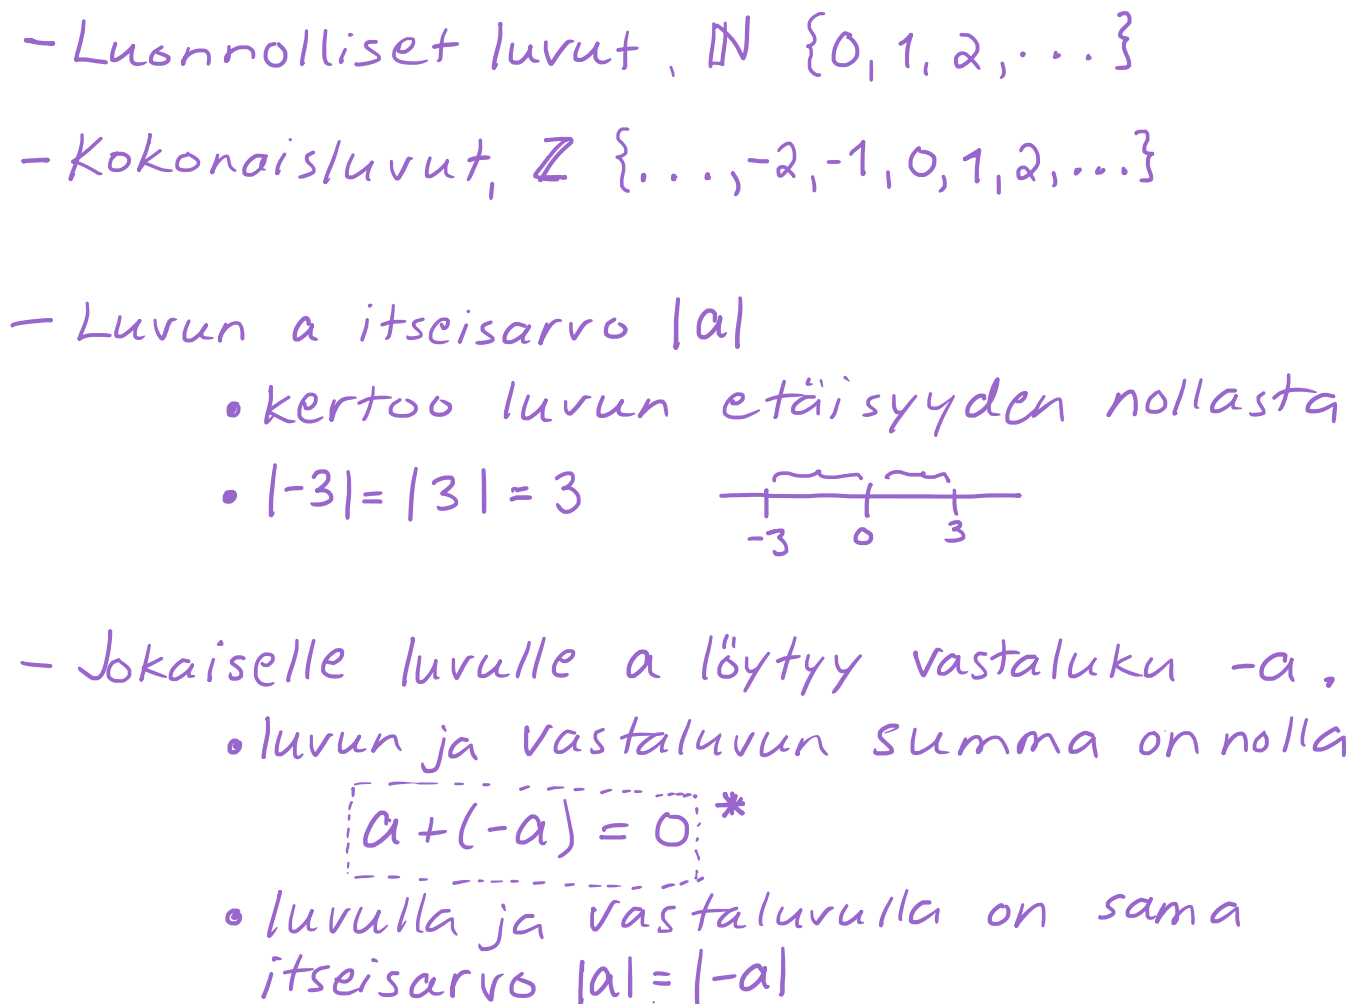 - Luonnolliset luvut, ℕ {0, 1, 2, ...}
- Kokonaisluvut, ℤ {..., -2, -1, 0, 1, 2, ...}
- Luvun a itseisarvo |a|
• kertoo luvun etäisyyden nollasta
• |-3| = |3| = 3
-3 0 3
- Jokaiselle luvulle a löytyy vastaluku -a.
• luvun ja vastaluvun summa on nolla
a + (-a) = 0 *
• luvulla ja vastaluvulla on sama
itseisarvo |a| = |-a|